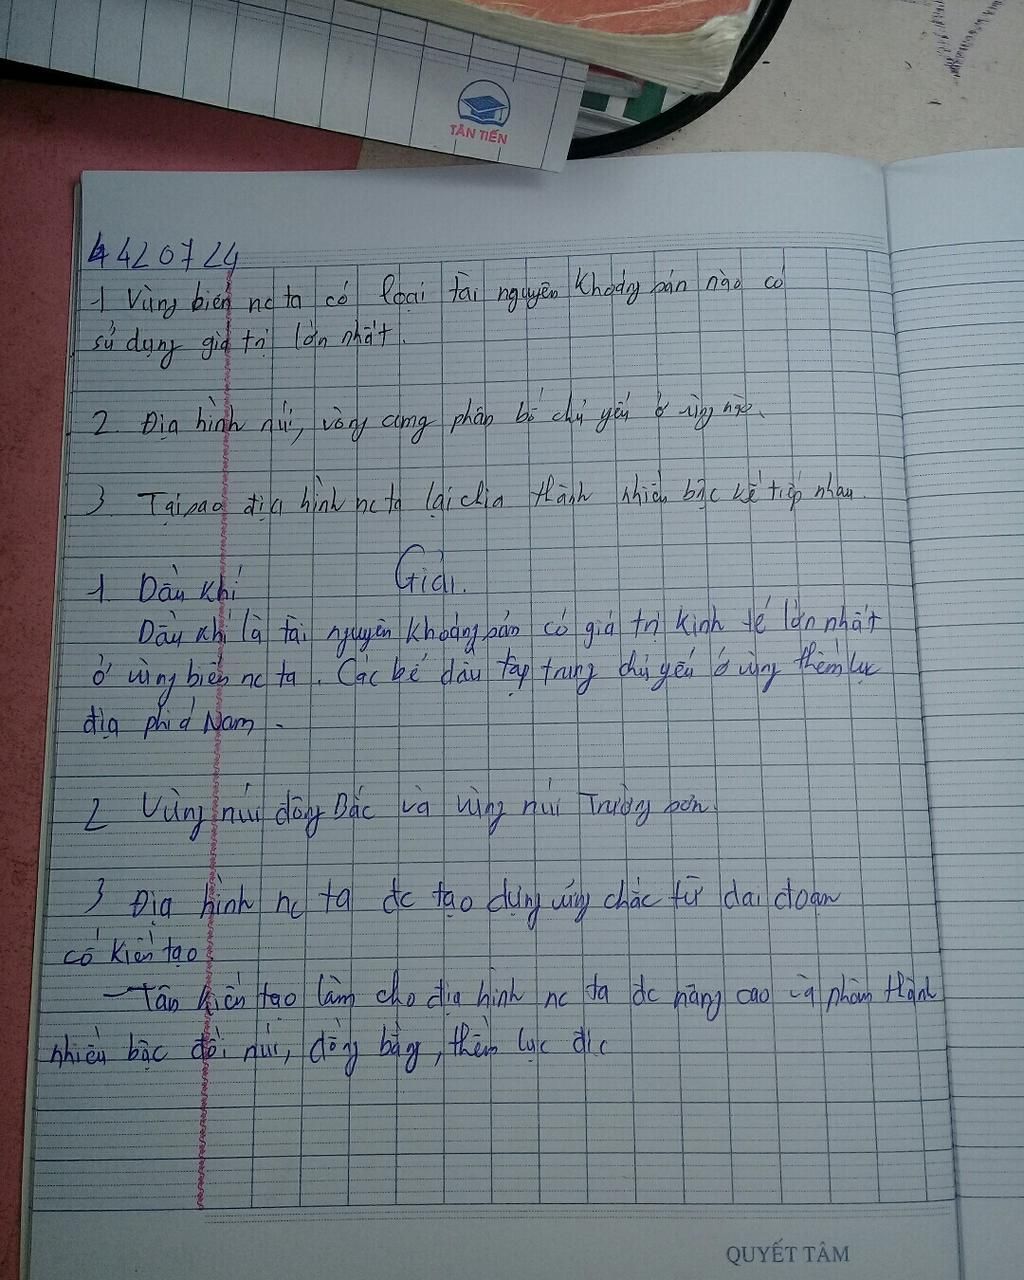 TÂN TIẾN
4420724
1 Vùng biển nc ta có loại tài nguyên khoáng sản nào có
sử dụng giá trị lớn nhất.
2. Địa hình núi, vòng cung phân bố chủ yếu ở vùng nào.
3. Tại sao địa hình nc ta lại chia thành nhiều bậc kế tiếp nhau.
Giải.
1. Dầu khí
Dầu khí là tài nguyên khoáng sản có giá trị kinh tế lớn nhất
ở vùng biển nc ta. Các bể dầu tập trung chủ yếu ở vùng thềm lục
địa phía Nam -
2 Vùng núi đông Bắc và vùng núi Trường sơn.
3 Địa hình nc ta đc tạo dựng vững chắc từ dai đoạn
cổ kiến tạo
- Tân kiến tạo làm cho địa hình nc ta đc nâng cao và phân thành
nhiều bậc đồi núi, đồng bằng, thềm lục
QUYẾT TÂM